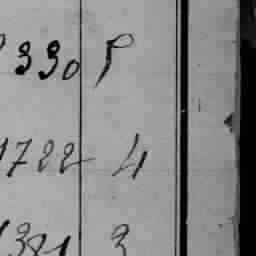 330 P
1722 4
1381 3